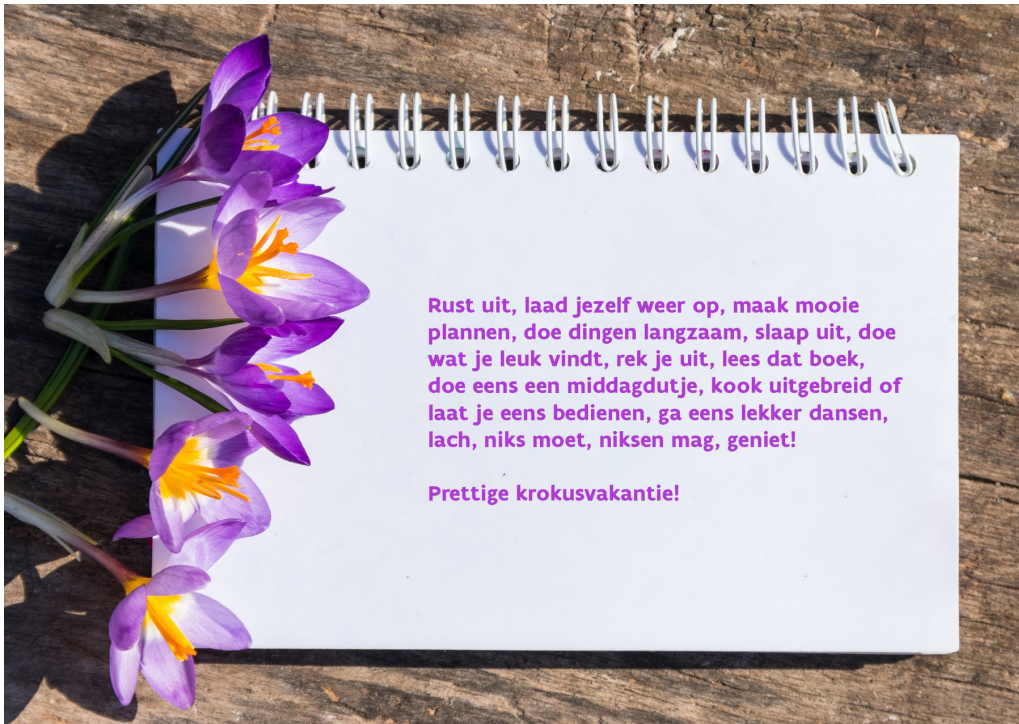 Rust uit, laad jezelf weer op, maak mooie
plannen, doe dingen langzaam, slaap uit, doe
wat je leuk vindt, rek je uit, lees dat boek,
doe eens een middagdutje, kook uitgebreid of
laat je eens bedienen, ga eens lekker dansen,
lach, niks moet, niksen mag, geniet!
Prettige krokusvakantie!